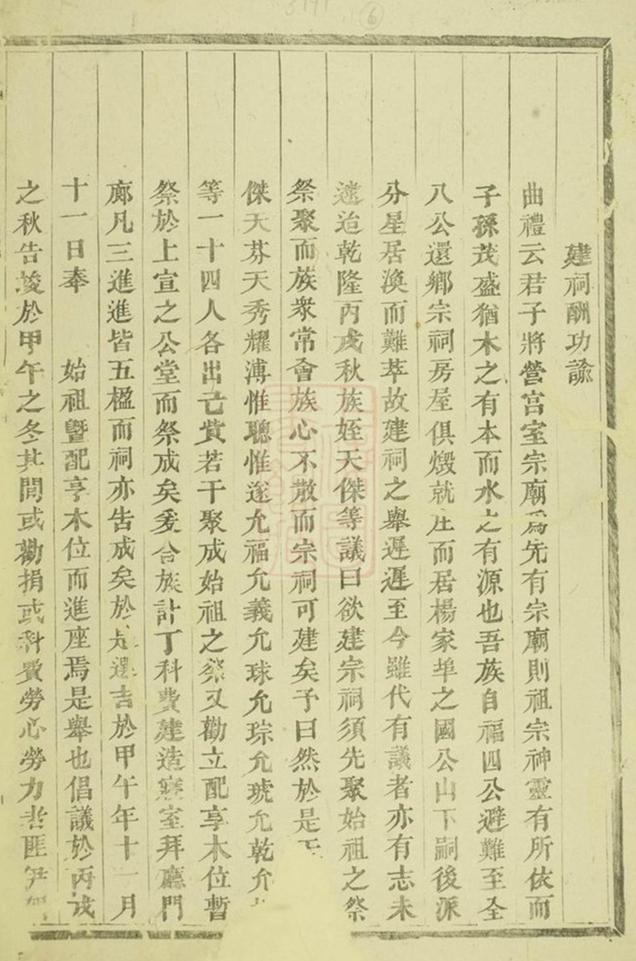 建祠酬功諭
曲禮云君子將營宮室宗廟爲先有宗廟則祖宗神靈有所依而
子孫茂盛猶木之有本而水之有源也吾族自福四公避難至全
八公還鄉宗祠房屋俱燬就庄而居楊家埠之國公山下嗣後派
分星居渙而難萃故建祠之舉遲遲至今雖代有議者亦有志未
逮迨乾隆丙戌秋族姪天傑等議曰欲建宗祠須先聚始祖之祭
祭聚而族衆常會族心不散而宗祠可建矣予曰然於是天
傑天芬天秀耀溥惟聰惟遂允福允義允球允琮允琥允乾允
等一十四人各出己貲若干聚成始祖之祭又勸立配享木位暫
祭於上宣之公堂而祭成矣爰合族計丁科費建造寢室拜廳門
廊凡三進進皆五楹而祠亦告成矣於是選吉於甲午年十一月
十一日奉 始祖暨配享木位而進座焉是舉也倡議於丙戌
之秋告竣於甲午之冬其間或勸捐或科費勞心勞力者匪伊